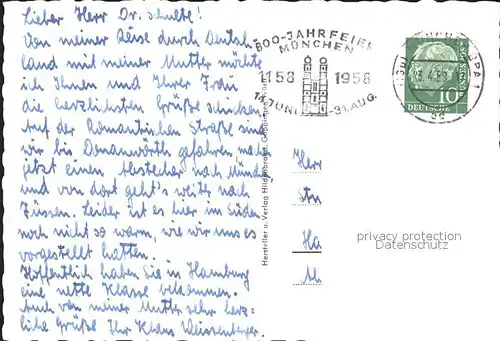 Lieber Herr Dr. Schulte!
Von meiner Reise durch Deutsch-
land mit meiner Mutter möchte
ich Ihnen und Ihrer Frau
die herzlichsten Grüße schicken.
Auf der Romantischen Straße sind
wir bis Donauwörth gefahren, machen
jetzt einen Abstecher nach München
und von dort geht's weiter nach
Füssen. Leider ist es hier im Süden
noch nicht so warm, wie wir uns es
vorgestellt hatten.
Hoffentlich haben Sie in Hamburg
eine nette Klasse bekommen.
Auch von meiner Mutter sehr herz-
liche Grüße Ihr Klaus Weissenberger.
800-JAHRFEIER
MÜNCHEN
1158 1958
14. JUNI - 31. AUG.
DEUTSCHE
10
Hersteller u. Verlag Hildenbrand, Göppingen
Herr
Stu
Ha
privacy protection
Datenschutz